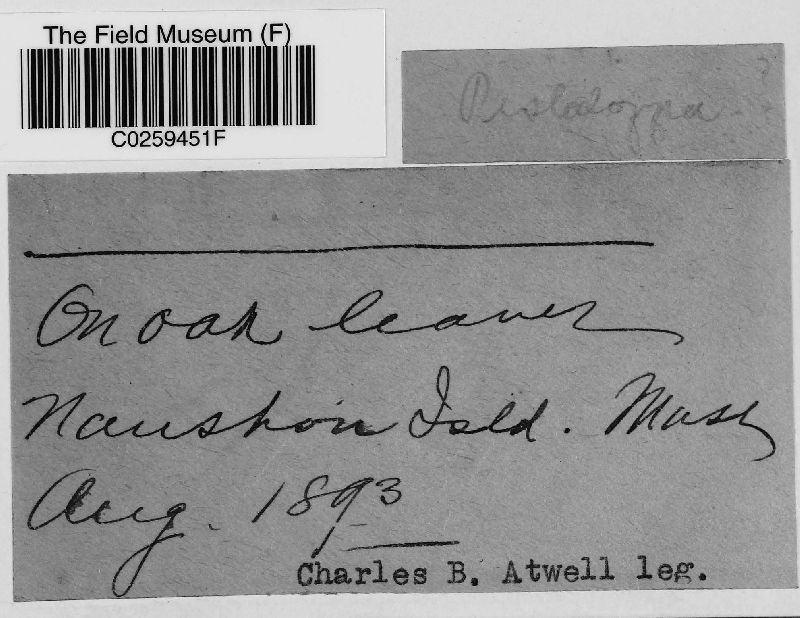 The Field Museum (F)
C0259451F
Pestalozzia ?
On oak leaves
Naushon Isld. Mass
Aug. 1893
Charles B. Atwell leg.